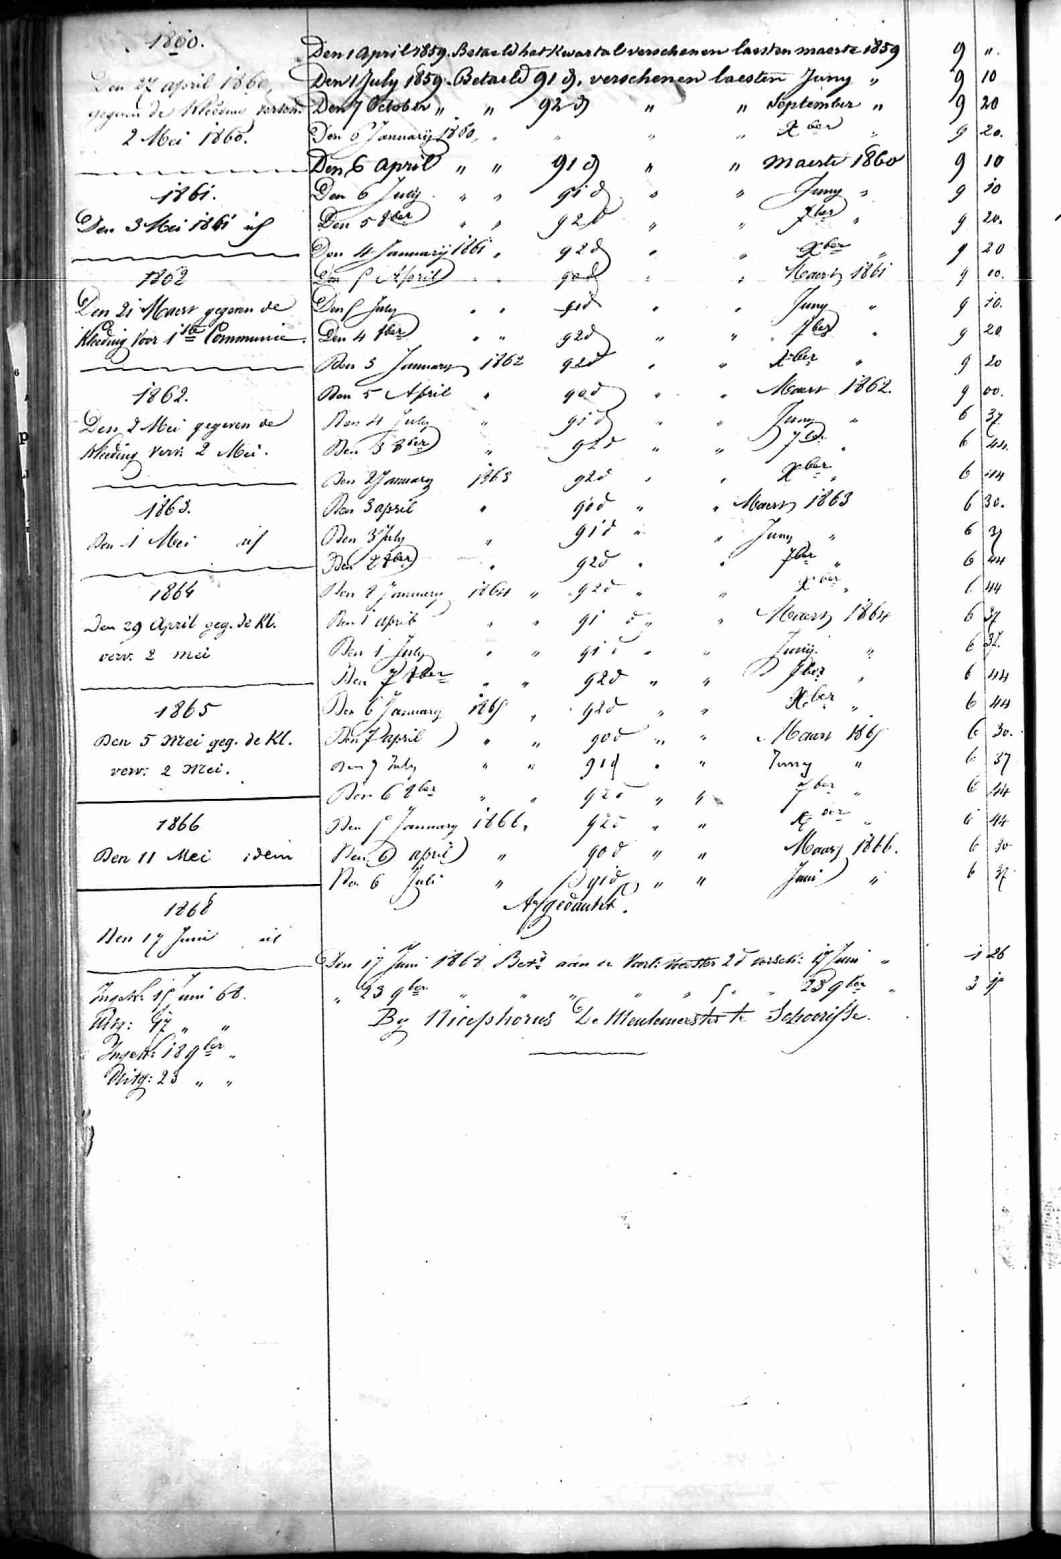 1860.
Den 27 april 1860,
gegeven de kleeding
2 Mei 1860.
1861.
Den 3 Mei 1861 id
1862
Den 21 Maert gegeven de
kleeding voor 1ste Communie.
1862.
Den 2 Mei gegeven de
kleeding verv: 2 Mei.
1863.
Den 1 Mei id
1864
Den 29 April geg. de kl.
verv: 2 mei
1865
Den 5 Mei geg. de kl.
verv: 2 Mei.
1866
Den 11 Mei idem
1868
Den 17 Juni id
Inschr: 15 Juni 68.
17 " "
Inschr: 18 9ber "
Uitg: 23 " "
Den 1 April 1859. Betaeld het kwartal verschenen laesten maerte 1859 9 "
Den 1 July 1859. Betaeld 91 d, verschenen laesten Juny " 9 10
Den 7 October " " 92 d " " September " 9 20
Den 6 January 1860, " " " " Xber " 9 20.
Den 6 april " " 91 d " " maerte 1860 9 10
Den 6 July " " 91 d " " Juny " 9 10
Den 5 8ber " " 92 d " " 7ber " 9 20.
Den 4 January 1861 " 92 d " " Xber " 9 20
Den 5 April " " 90 d " " Maert 1861 9 "
Den 5 July " " 91 d " " Juny " 9 10.
Den 4 8ber " " 92 d " " 7ber " 9 20
Den 3 January 1862 92 d " " Xber " 9 20
Den 5 April " 90 d " " Maert 1862. 9 00.
Den 4 July " 91 d " " Juny " 6 37
Den 3 8ber " 92 d " " 7ber " 6 44
Den 2 January 1863 92 d " " Xber " 6 44
Den 3 april " 90 d " " Maert 1863 6 30.
Den 3 July " 91 d " " Juny " 6 37
Den 2 8ber " 92 d " " 7ber " 6 44
Den 8 January 1864 " 92 d " " Xber " 6 44
Den 1 april " " 91 d " " Maert 1864 6 37
Den 1 July " " 91 d " " Juny " 6 37.
Den 7 8ber " " 92 d " " 7ber " 6 44
Den 6 January 1865 " 92 d " " Xber " 6 44
Den 7 april " " 90 d " " Maart 1865 6 30.
Den 7 July " " 91 d " " Juny " 6 37
Den 6 8ber " " 92 d " " 7ber " 6 44
Den 5 January 1866 " 92 d " " Xber " 6 44
Den 6 april " 90 d " " Maart 1866. 6 30
Den 6 Juli " 91 d " " Juni " 6 37
Afgedankt.
Den 17 Juni 1868 Betd aan de 2 d versch: 17 Juni " 1 26
" 23 9ber " " " " " 5 " " 23 9ber " 3 15
By Nicephorus De Meulemeester te Schoorisse.